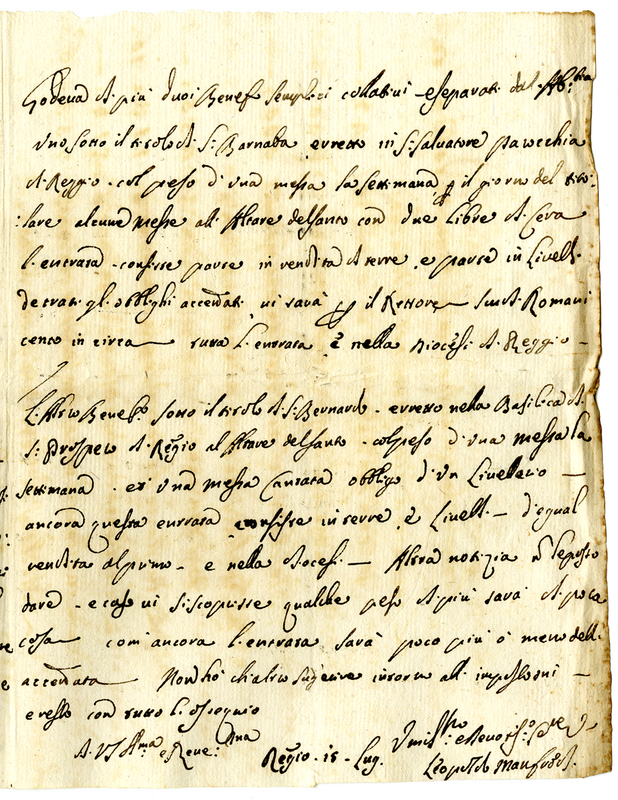 Godeva di più duoi Benefi semplici collativi - e separati dal
Uno sotto il titolo di S: Barnaba erretto in S: Salvatore parecchia
di Reggio - col peso d'una messa la settimana il giorno del tito:
:lare alcune messe all: Altare del santo con due Libre di Cera
l: entrata - consiste parte in vendita di terre e parte in Livelli
detrati gl: obblighi accennati vi sarà il Rettore scudi Romani
cento in circa tutta l: entrata è nella Diocesi di Reggio -
L: Altro Benefo sotto il titolo di S: Bernardo - erretto nella Basilica di
S: Prospero di Reggio al Altare del santo - col peso d'una messa la
settimana - et una messa Cantata obbligo d'un Livellario -
ancora questa entrata consiste in terre, e Livelli - d'equal
rendita al primo - e nella diocesi - Altra notizia
dare - e caso vi si scoprisse qualche peso di più sarà di poca
cosa com'ancora l: entrata sarà poco più ò meno dell:
accennata Non hò ch'altro sugerire intorno all:
e resto con tutto l: ossequio
A. V. S. Illma e Reve:ma
Reggio - 15 - Lug.
Leopoldo Manfredi